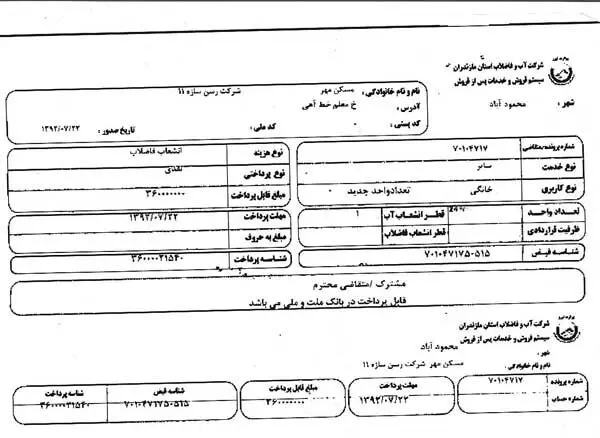 شرکت آب و فاضلاب استان مازندران
سیستم فروش و خدمات پس از فروش
شهر : محمود آباد
نام و نام خانوادگی : مسکن مهر شرکت رسن سازه ۱۱
آدرس : خ معلم خط آهی
کد پستی : ۰ کد ملی : تاریخ صدور : ۱۳۹۲/۰۷/۲۲
شماره پرونده/متقاضی ۷۰۱۰۴۷۱۷
نوع خدمت سایر
نوع کاربری خانگی تعدادواحد جدید ۰
نوع هزینه انشعاب فاضلاب
نوع پرداختی نقدی
مبلغ قابل پرداخت ۳۶۰۰۰۰۰۰۰
تعداد واحد قطر انشعاب آب ۱
ظرفیت قراردادی قطر انشعاب فاضلاب
شناسه قبض ۷۰۱۰۴۷۱۷۵۰۵۱۵
مهلت پرداخت ۱۳۹۲/۰۷/۲۲
مبلغ به حروف
شناسه پرداخت ۳۶۰۰۰۰۲۱۵۴۰
مشترک /متقاضی محترم
قابل پرداخت در بانک ملت و ملی می باشد
شرکت آب و فاضلاب استان مازندران
سیستم فروش و خدمات پس از فروش
شهر : محمود آباد
نام و نام خانوادگی : مسکن مهر شرکت رسن سازه ۱۱
شماره پرونده ۷۰۱۰۴۷۱۷
شماره حساب
مهلت پرداخت ۱۳۹۲/۰۷/۲۲
مبلغ قابل پرداخت ۳۶۰۰۰۰۰۰۰
شناسه قبض ۷۰۱۰۴۷۱۷۵۰۵۱۵
شناسه پرداخت ۳۶۰۰۰۰۲۱۵۴۰